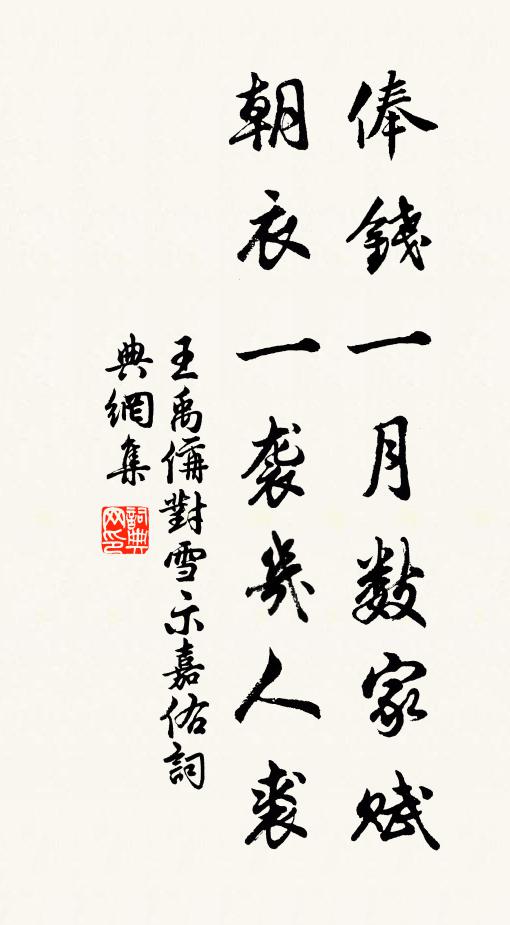 俸錢一月数家賦
朝衣一袭幾人裘
王禹偁對雪示嘉佑詞
典網集
詞典
网印